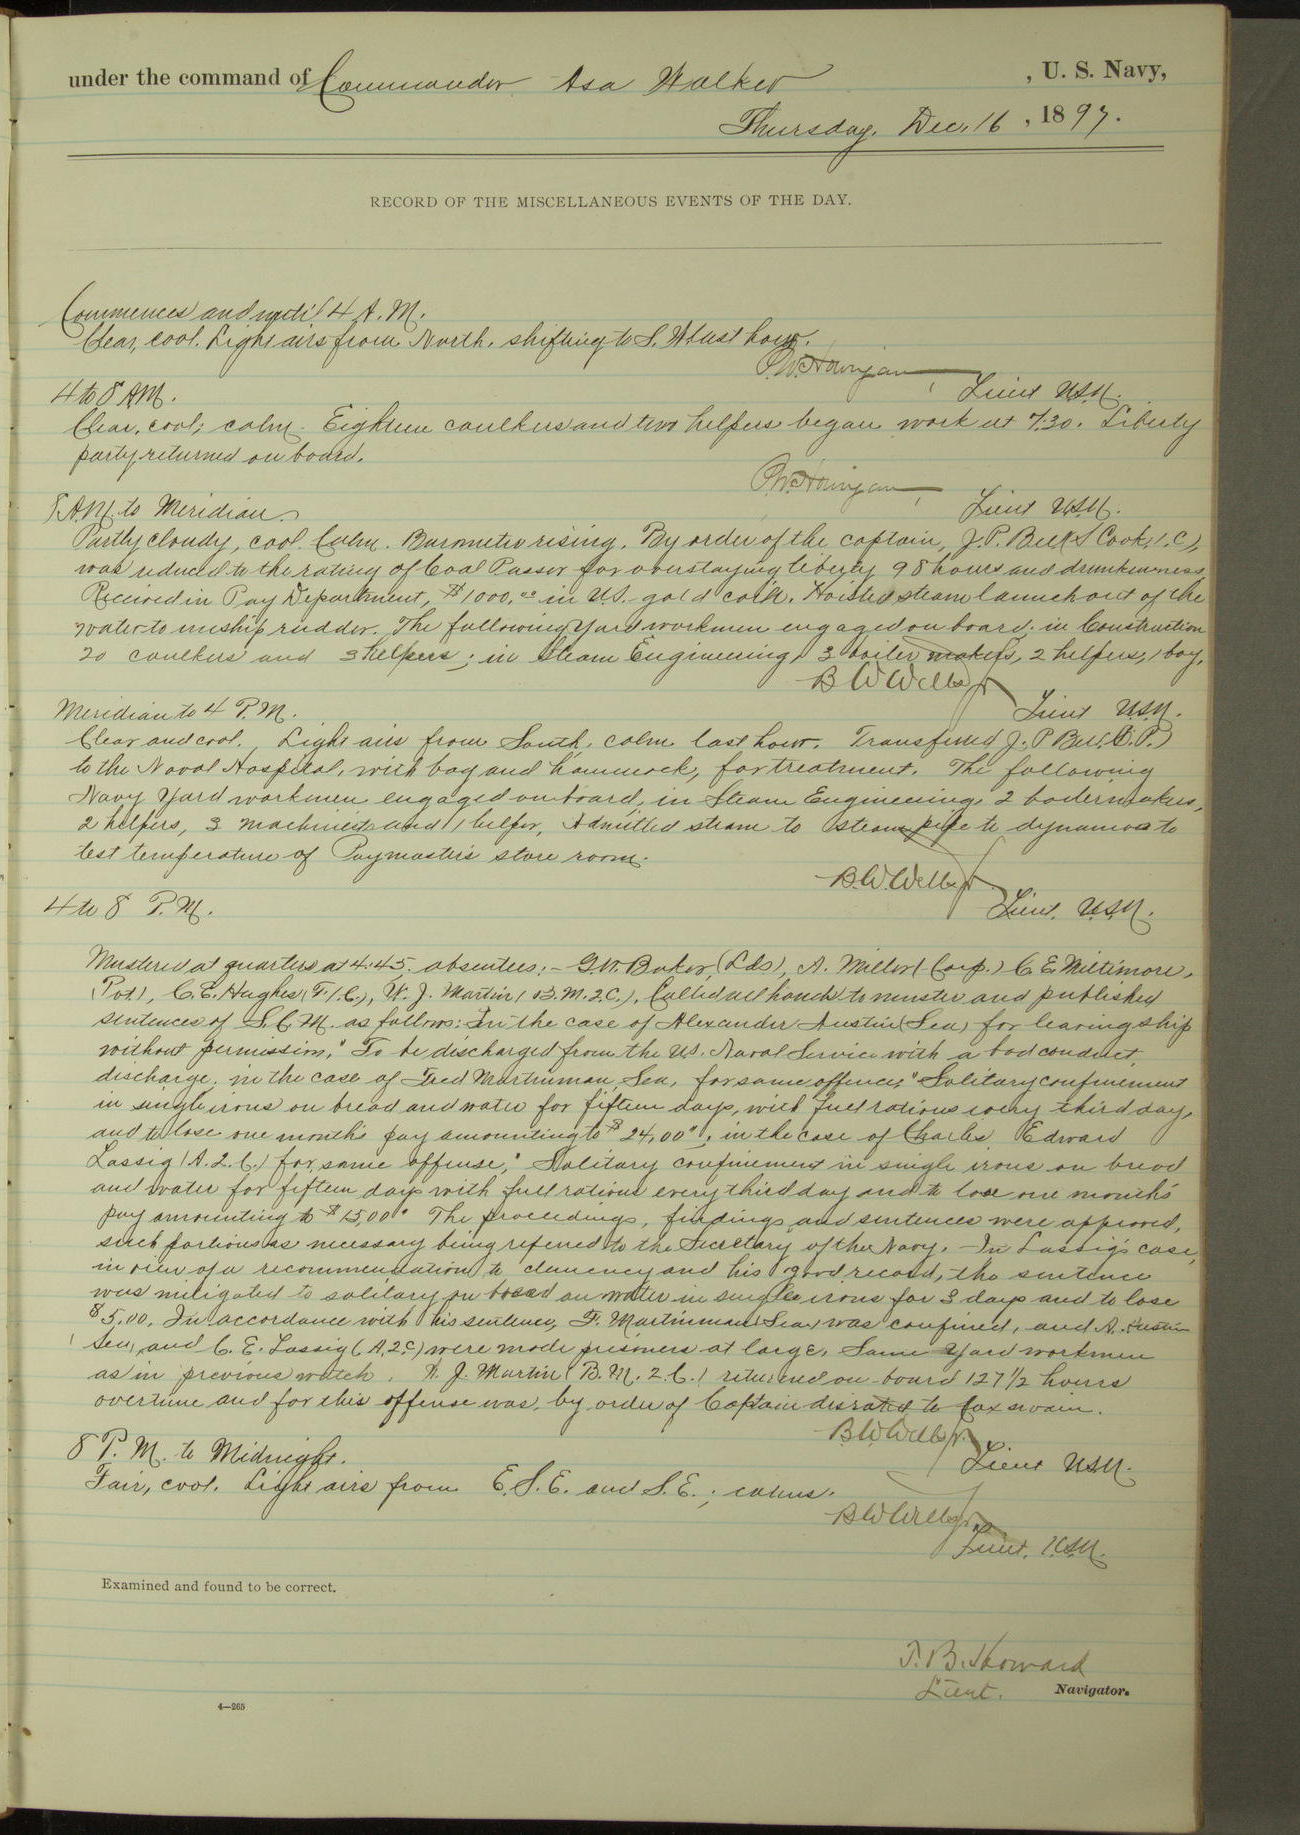 under the command of Commander Asa Walker, U. S. Navy,
Thursday, Dec. 16, 1897.
RECORD OF THE MISCELLANEOUS EVENTS OF THE DAY.
Commences and until 4 A.M.
Clear, cool. Light airs from North, shifting to S. W last hour.
Lieut USN.
4 to 8 AM.
Clear, cool; calm. Eighteen caulkers and two helpers began work at 7.30. Liberty
party returned on board.
Lieut USN.
8 A.M. to Meridian.
Partly cloudy, cool. Calm. Barometer rising. By order of the captain, J. P. Bell (S Cook, 1.C),
was reduced to the rating of Coal Passer for overstaying liberty 98 hours and drunkenness.
Received in Pay Department, $1000.00 in U.S. gold coin. Hoisted steam launch out of the
water to unship rudder. The following Yard workmen engaged on board: in Construction
20 caulkers and 3 helpers; in Steam Engineering, 3 boiler makers, 2 helpers, 1 boy.
B W Wells Jr
Lieut USN.
Meridian to 4 P.M.
Clear and cool. Light airs from South, calm last hour. Transferred J. P Bell, (C.P.)
to the Naval Hospital, with bag and hammock, for treatment. The following
Navy Yard workmen engaged on board, in Steam Engineering, 2 boilermakers,
2 helpers, 3 machinists and 1 helper. Admitted steam to steam pipe to dynamos to
test temperature of Paymaster's store room.
B. W. Wells Jr
Lieut. U.S.N.
4 to 8 P.M.
Mustered at quarters at 4.45. absentees:- G. W. Baker, (Lds), A. Miller (Corp.) C E Miltimore,
(Pvt), C. E. Hughes (F.1.C.), W. J. Martin (B.M.2.C.). Called all hands to muster and published
sentences of S.C.M. as follows: In the case of Alexander Austin (Sea) for leaving ship
without permission, "To be discharged from the U.S. Naval Service with a bad conduct
discharge; in the case of Fred Martinman, Sea, for same offence, "Solitary confinement
in single irons on bread and water for fifteen days, with full rations every third day,
and to lose one month's pay amounting to $24.00"; in the case of Charles Edward
Lassig (A.2.C.) for same offense, "Solitary confinement in single irons on bread
and water for fifteen days with full rations every third day and to lose one month's
pay amounting to $15.00" The proceedings, findings and sentences were approved,
such portions as necessary being referred to the Secretary of the Navy. In Lassig's case,
in view of a recommendation to clemency and his good record, the sentence
was mitigated to solitary on bread an water in single irons for 3 days and to lose
$5.00. In accordance with his sentence, F. Martinman (Sea) was confined, and A. Austin
(Sea), and C. E. Lassig (A.2C) were made prisoners at large. Same Yard workmen
as in previous watch. W. J. Martin (B.M. 2.C.) returned on board 127 1/2 hours
overtime and for this offense was, by order of Captain disrated to Coxswain.
B W Wells Jr.
Lieut USN.
8 P.M. to Midnight.
Fair, cool. Light airs from E.S.E. and S.E.; calms.
B W Wells Jr
Lieut. USN.
Examined and found to be correct.
T. B. Howard
Lieut. Navigator.
4—265